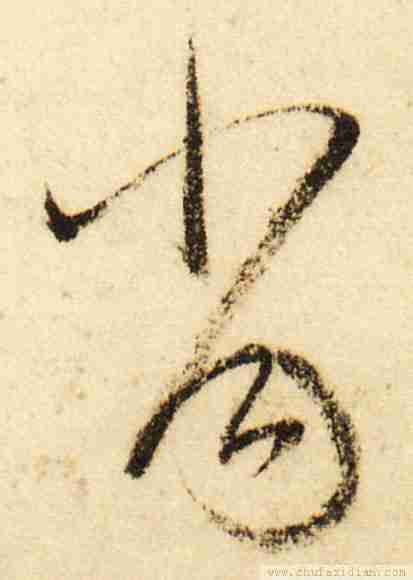 省
www.shufazidian.com